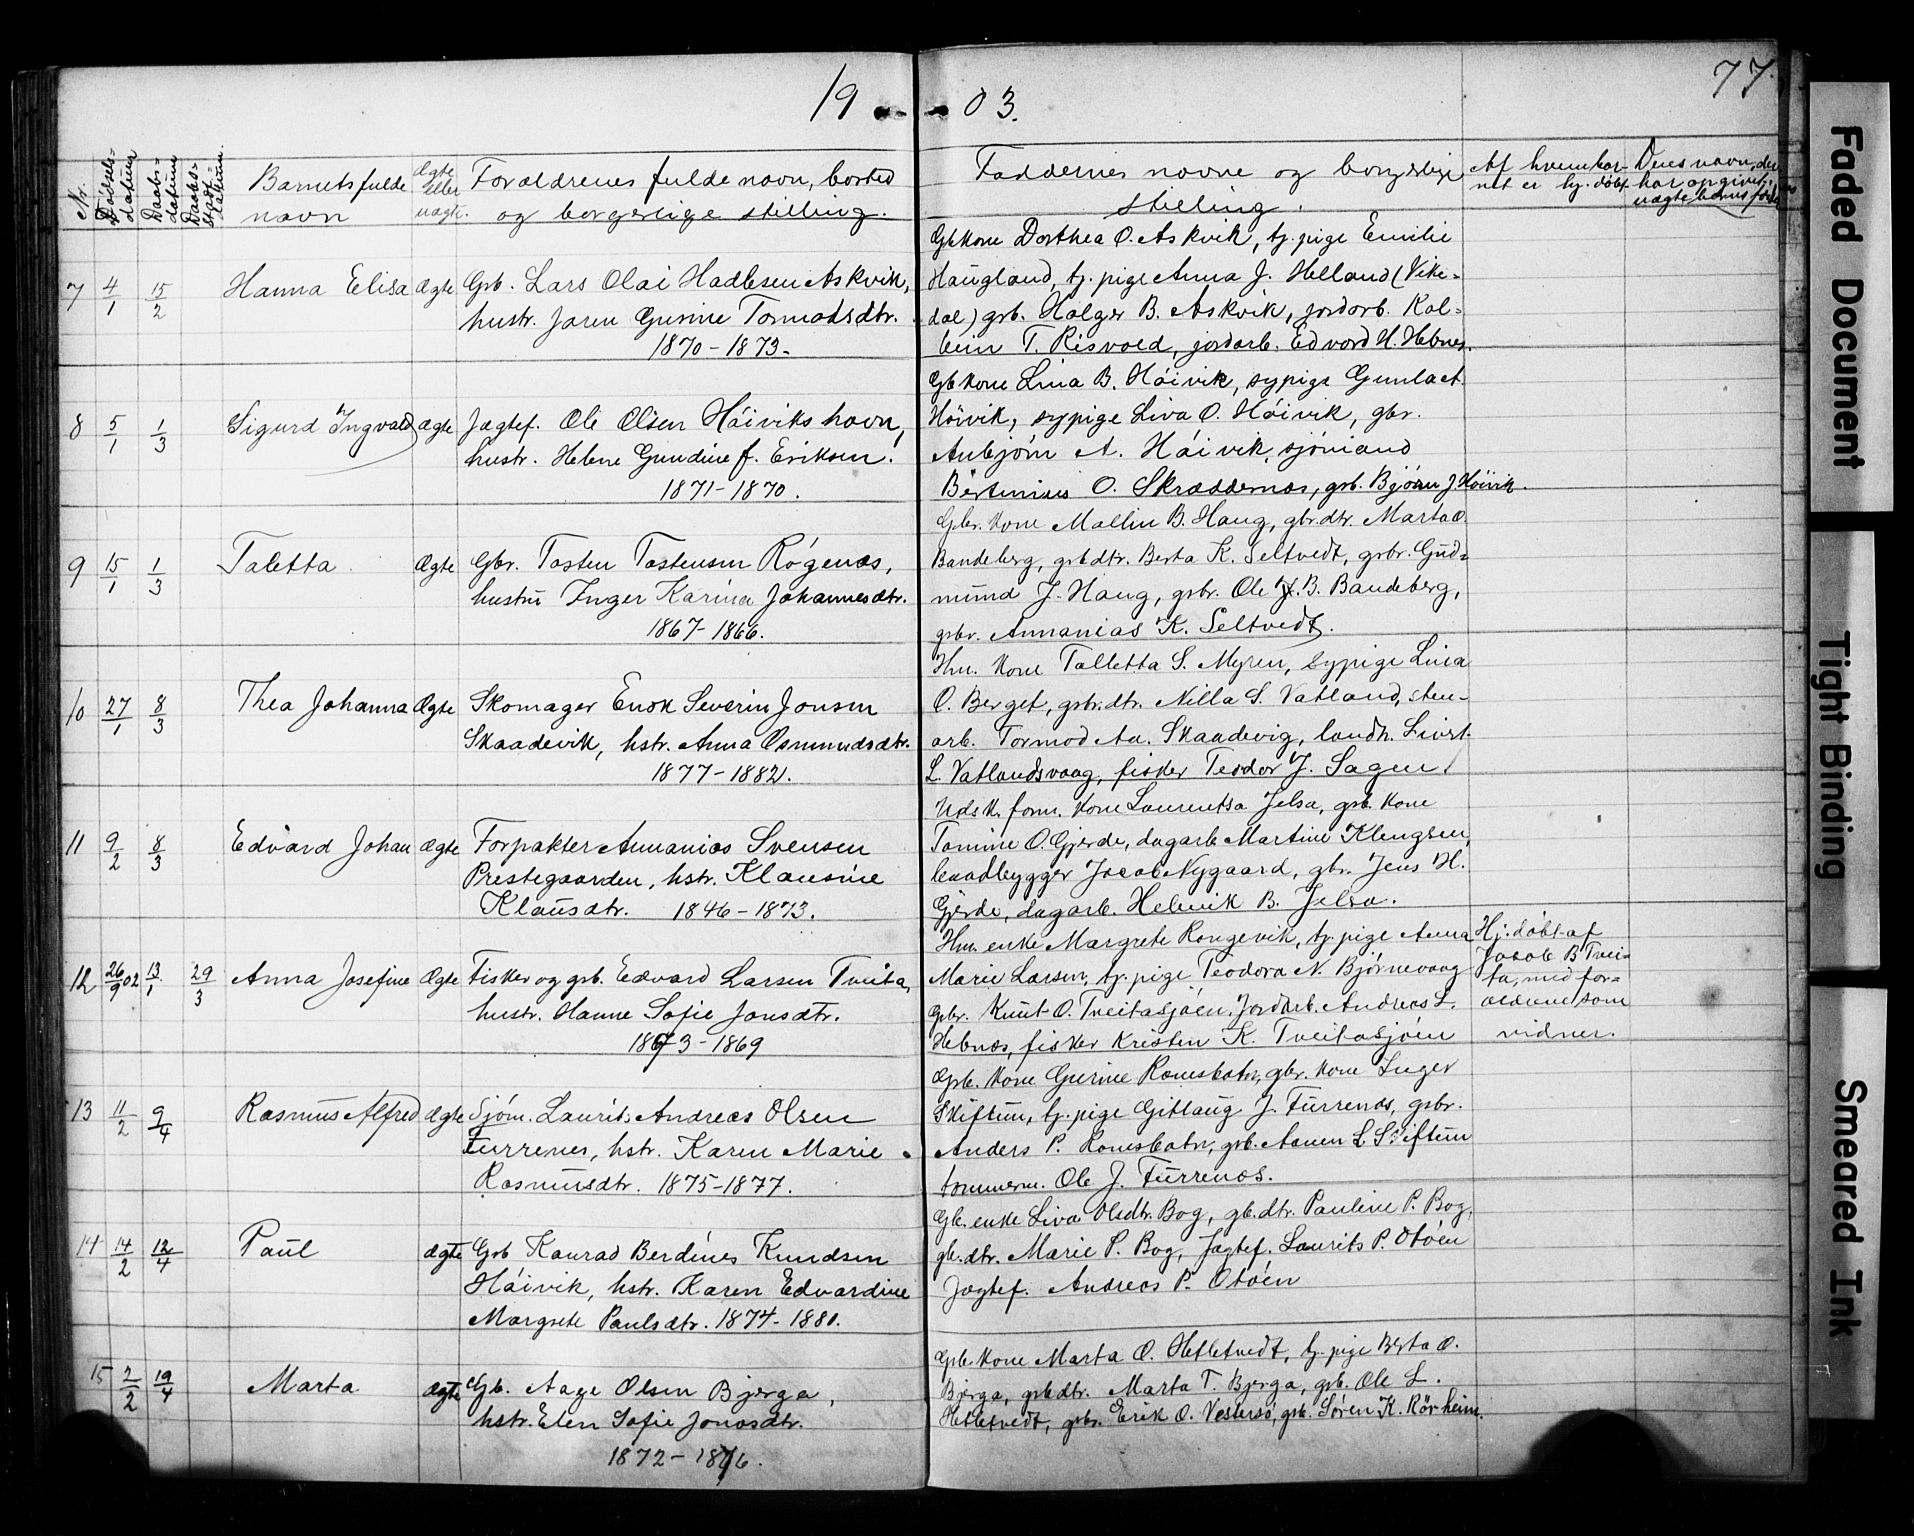 19 03.
77.
Nr.
Fødsels-
datum
Daabs-
datum
Barnets fulde
navn
Ægte
eller
uægte.
Forældrenes fulde navn, bosted
og borgerlige stilling.
Faddernes navne og borgerlige
stilling.
Af hvem bar-
net er hj. døbt.
Dens navn, der
har opgivet
uægte barns fader
7 4/1 15/2 Hanna Elisa Ægte Gsb. Lars Olai Hadlesen Askvik,
hustr. Jaren Gurine Tormodsdtr.
1870 - 1873.
Gbkone Dorthea O. Askvik, tj. pige Emilie
Haugland, tj. pige Anna J. Helland (Vike-
dal) gsb. Holger B. Askvik, jordarb. Kol-
bein T. Risvold, jordarb. Edvard H. Hebnes.
8 5/1 1/3 Sigurd Ingvald Ægte Jægtef. Ole Olsen Höivikshavn,
hustr. Helene Gundine f. Eriksen.
1871 - 1870.
Gbkone Lina B. Höivik, sypige Gunla A.
Höivik, sypige Liva O. Höivik, gbr.
Anbjörn A. Höivik, sjömand
Bertinius O. Skræddernæs, gsb. Björn J. Höivik.
9 15/1 1/3 Taletta. Ægte Gbr. Tosten Tostensen Rögenæs,
hustru Inger Karina Johannesdtr.
1867 - 1866.
Gbr. kone Mallin B. Haug, gbr.dtr. Marta O.
Bandeberg, gsbdtr. Berta K. Seltvedt, gsbr. Gud-
mund J. Haug, gsbr. Ole B. Bandeberg,
gsbr. Annanias K. Seltvedt.
10 27/1 8/3 Thea Johanna Ægte Skomager Enok Severin Jonsen
Skaadevik, hstr. Anna Osmundsdtr.
1877 - 1882.
Hm. kone Talletta S. Myren, sypige Lina
O. Berget, gsbr.dtr. Nilla S. Vatland, sten-
arb. Tormod Aa. Skaadevig, landh. Sivert
L. Vatlandsvaag, fisker Teodor J. Sagen.
11 9/2 8/3 Edvard Johan Ægte Forpakter Annanias Svensen
Prestegaarden, hstr. Klausine
Klausdtr. 1846 - 1873.
Udsk. form. kone Laurentsa Jelsa, gsb. kone
Tomine O. Gjerde, dagarb. Martine Klengsen,
baadbygger Jacob Nygaard, gbr. Jens H.
Gjerde, dagarb. Helmik B. Jelsa.
12 26/9 02 13/1 29/3 Anna Josefine Ægte Fisker og gsb. Edvard Larsen Tveita,
hustr. Hanne Sofie Jonsdtr.
1873 - 1869
Hm. enke Margrete Rongevik, tj. pige Anna
Marie Larsen, tj. pige Teodora N. Björnevaag
Gsbr. Knut O. Tveitasjöen, Jordarb. Andreas L.
Hebnæs, fisker Kristen K. Tveitasjöen
Hj. döbt af
Jacob B Tvei-
ta, med for-
ældrene som
vidner.
13 11/2 9/4 Rasmus Alfred Ægte Sjöm. Laurits Andreas Olsen
Furrenes, hstr. Karen Marie
Rasmusdtr. 1875 - 1877.
Gsb. kone Gurine Ramsbotn, gbr. kone Inger
Skiftun, tj. pige Gitlaug J. Furrenæs, gsbr.
Anders P. Ramsbotn, gsb. Aanen L. Skiftun
tømmerm. Ole J. Furrenæs.
14 14/2 12/4 Paul Ægte Gsb Konrad Berdines Knudsen
Höivik, hstr. Karen Edvardine
Margrete Paulsdtr. 1874 - 1880.
Gb. enke Liva Olsdtr. Bog, gb.dtr. Pauline P. Bog,
gb.dtr. Marie P. Bog, Jægtef. Laurits P. Otöen
Jægtef. Andreas P. Otöen
15 2/2 19/4 Marta Ægte Gb. Aage Olsen Bjerga,
hstr. Elen Sofie Jonasdtr.
1872 - 1876.
Gsb. kone Marta O. Hetletvedt, tj. pige Berta O.
Bjerga, gsbdtr. Marta T. Bjerga, gsb. Ole L.
Hetletvedt, gsbr. Erik O. Vestersö, gsb. Sören K. Rörheim.
Faded Document
Tight Binding
Smeared Ink